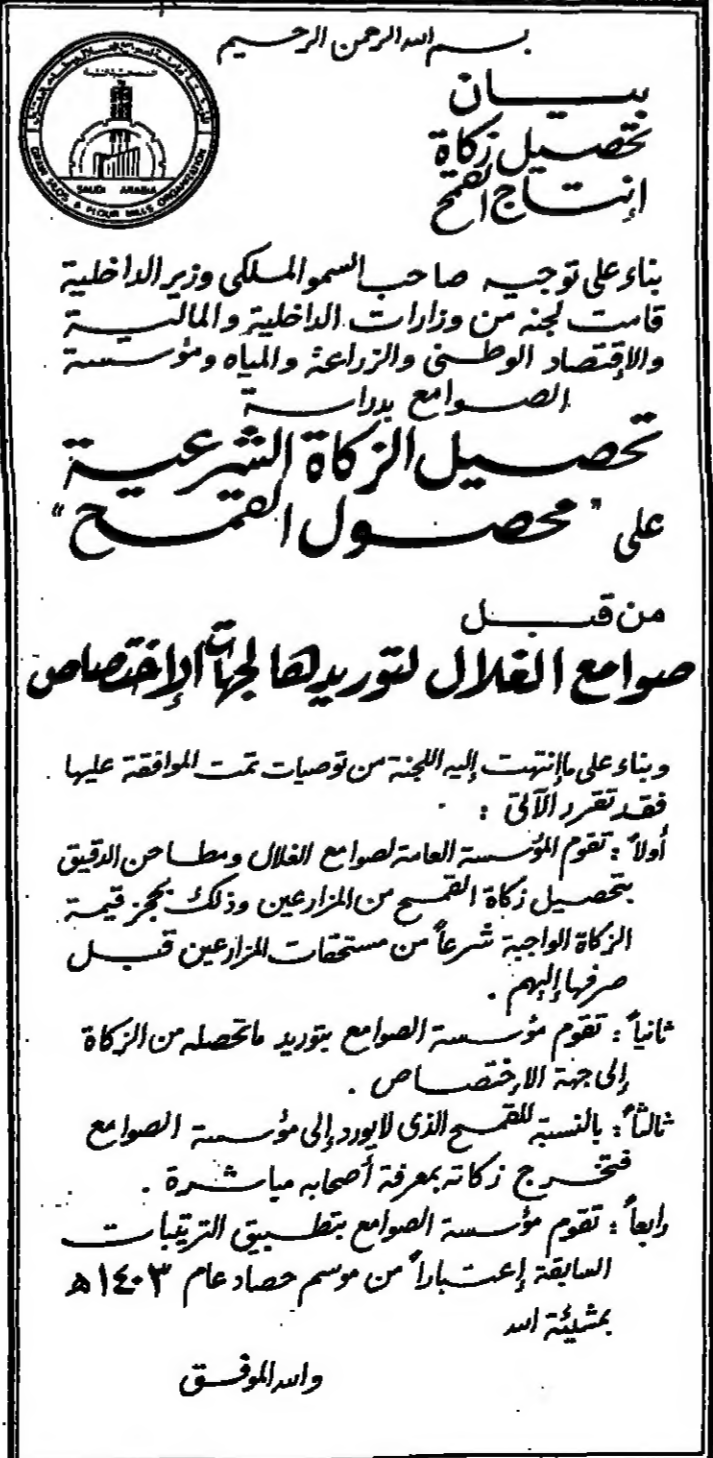 بسم الله الرحمن الرحيم
SAUDI ARABIA
GRAIN SILOS & FLOUR MILLS ORGANIZATION
بيان
تحصيل زكاة
إنتاج القمح
بناء على توجيه صاحب السمو الملكى وزير الداخلية
قامت لجنه من وزارات الداخلية والمالية
والإقتصاد الوطنى والزراعة والمياه ومؤسسة
الصوامع بدراسة
تحصيل الزكاة الشرعية
على "محصول القمح"
من قبل
صوامع الغلال لتوريدها لجهات الإختصاص
وبناء على ماإنتهت إليه اللجنة من توصيات تمت الموافقة عليها
فقد تقرر الآتى :
أولاً : تقوم المؤسسة العامة لصوامع الغلال ومطاحن الدقيق
بتحصيل زكاة القمح من المزارعين وذلك بحجز قيمة
الزكاة الواجبة شرعاً من مستحقات المزارعين قبل
صرفها إليهم .
ثانياً : تقوم مؤسسة الصوامع بتوريد ماتحصله من الزكاة
إلى جهة الإختصاص .
ثالثاً : بالنسبة للقمح الذى لايورد إلى مؤسسة الصوامع
فتخرج زكاته بمعرفة أصحابه مباشرة .
رابعاً : تقوم مؤسسة الصوامع بتطبيق الترتيبات
السابقة إعتباراً من موسم حصاد عام ١٤٠٣ه
بمشيئة الله
والله الموفق